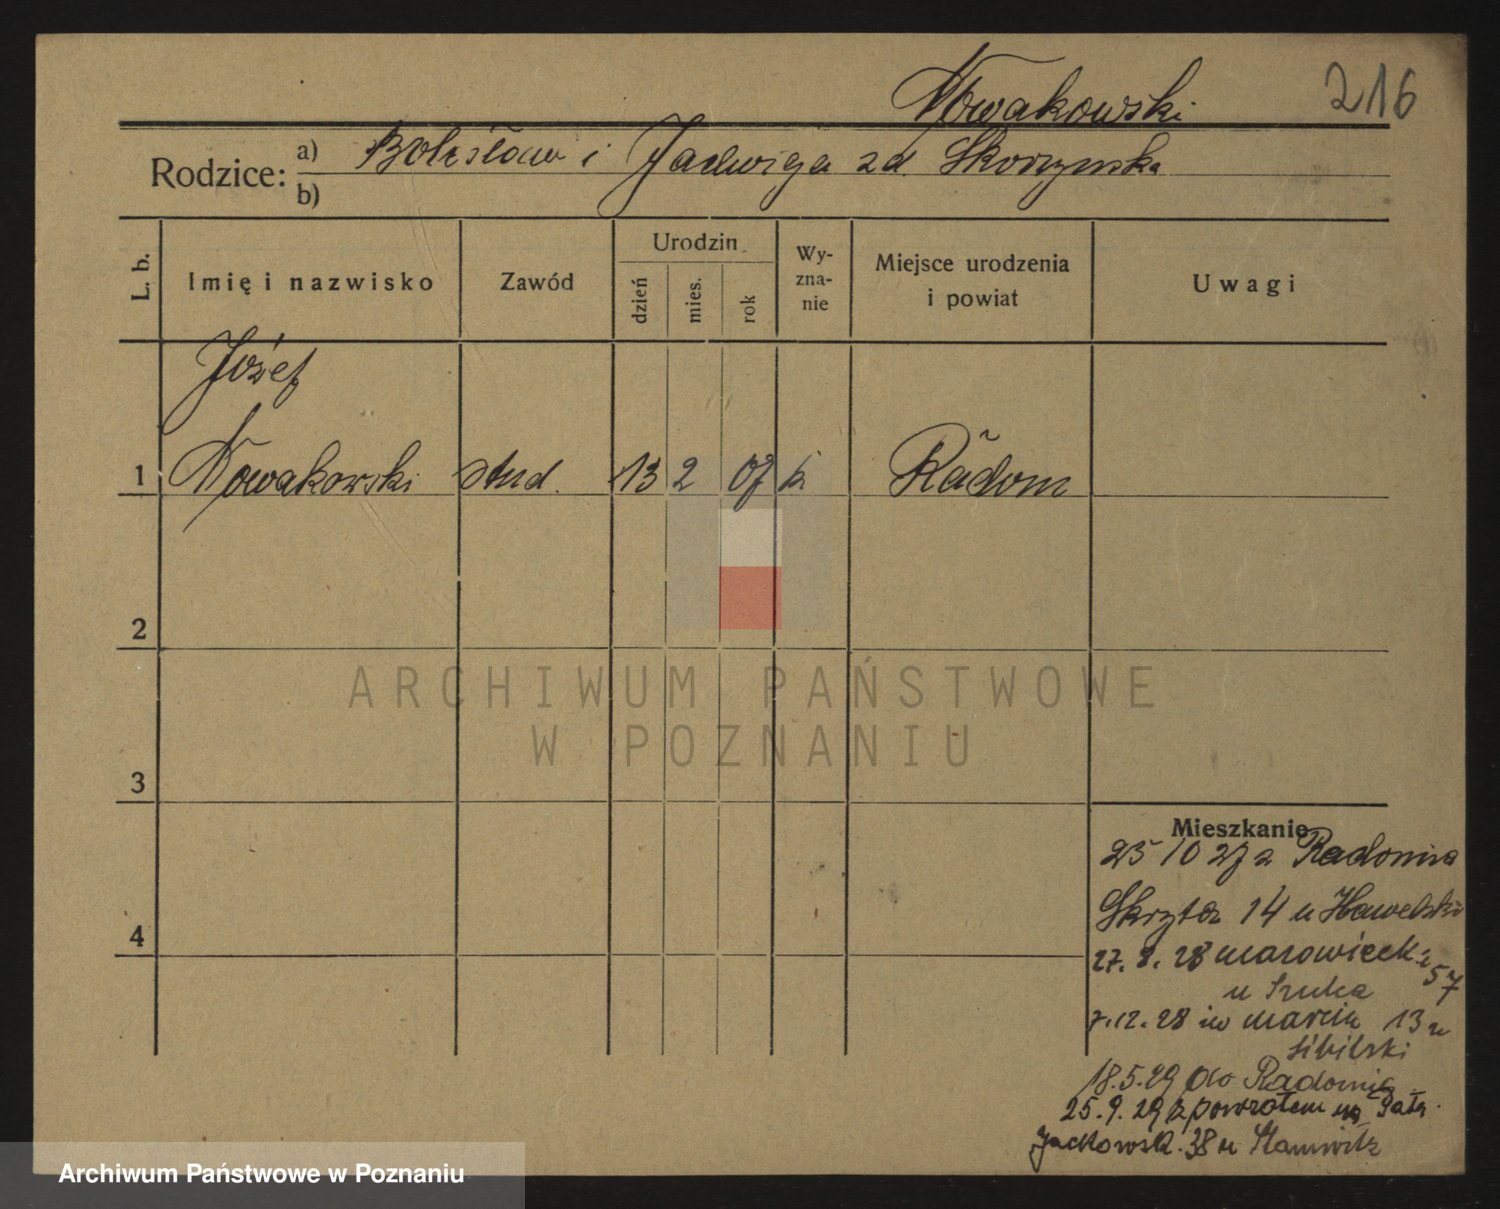 Nowakowski
216
Rodzice:
a) Bolesław i Jadwiga zd. Skorzynska
b)
L. b.
Imię i nazwisko
Zawód
Urodzin
dzień
mies.
rok
Wy-
zna-
nie
Miejsce urodzenia
i powiat
Uwagi
Józef
1 Nowakowski stud. 13 2 07 k Radom
2
ARCHIWUM PAŃSTWOWE
W POZNANIU
3
Mieszkanie
25 10 27 z Radomia
14 u Hawelski
4
27. 8. 28 57
u
7.12.28 św marcin 13 u
18.5.29 do Radomia
25.9.29 z powrotem
Jackowsk. 38 u
Archiwum Państwowe w Poznaniu